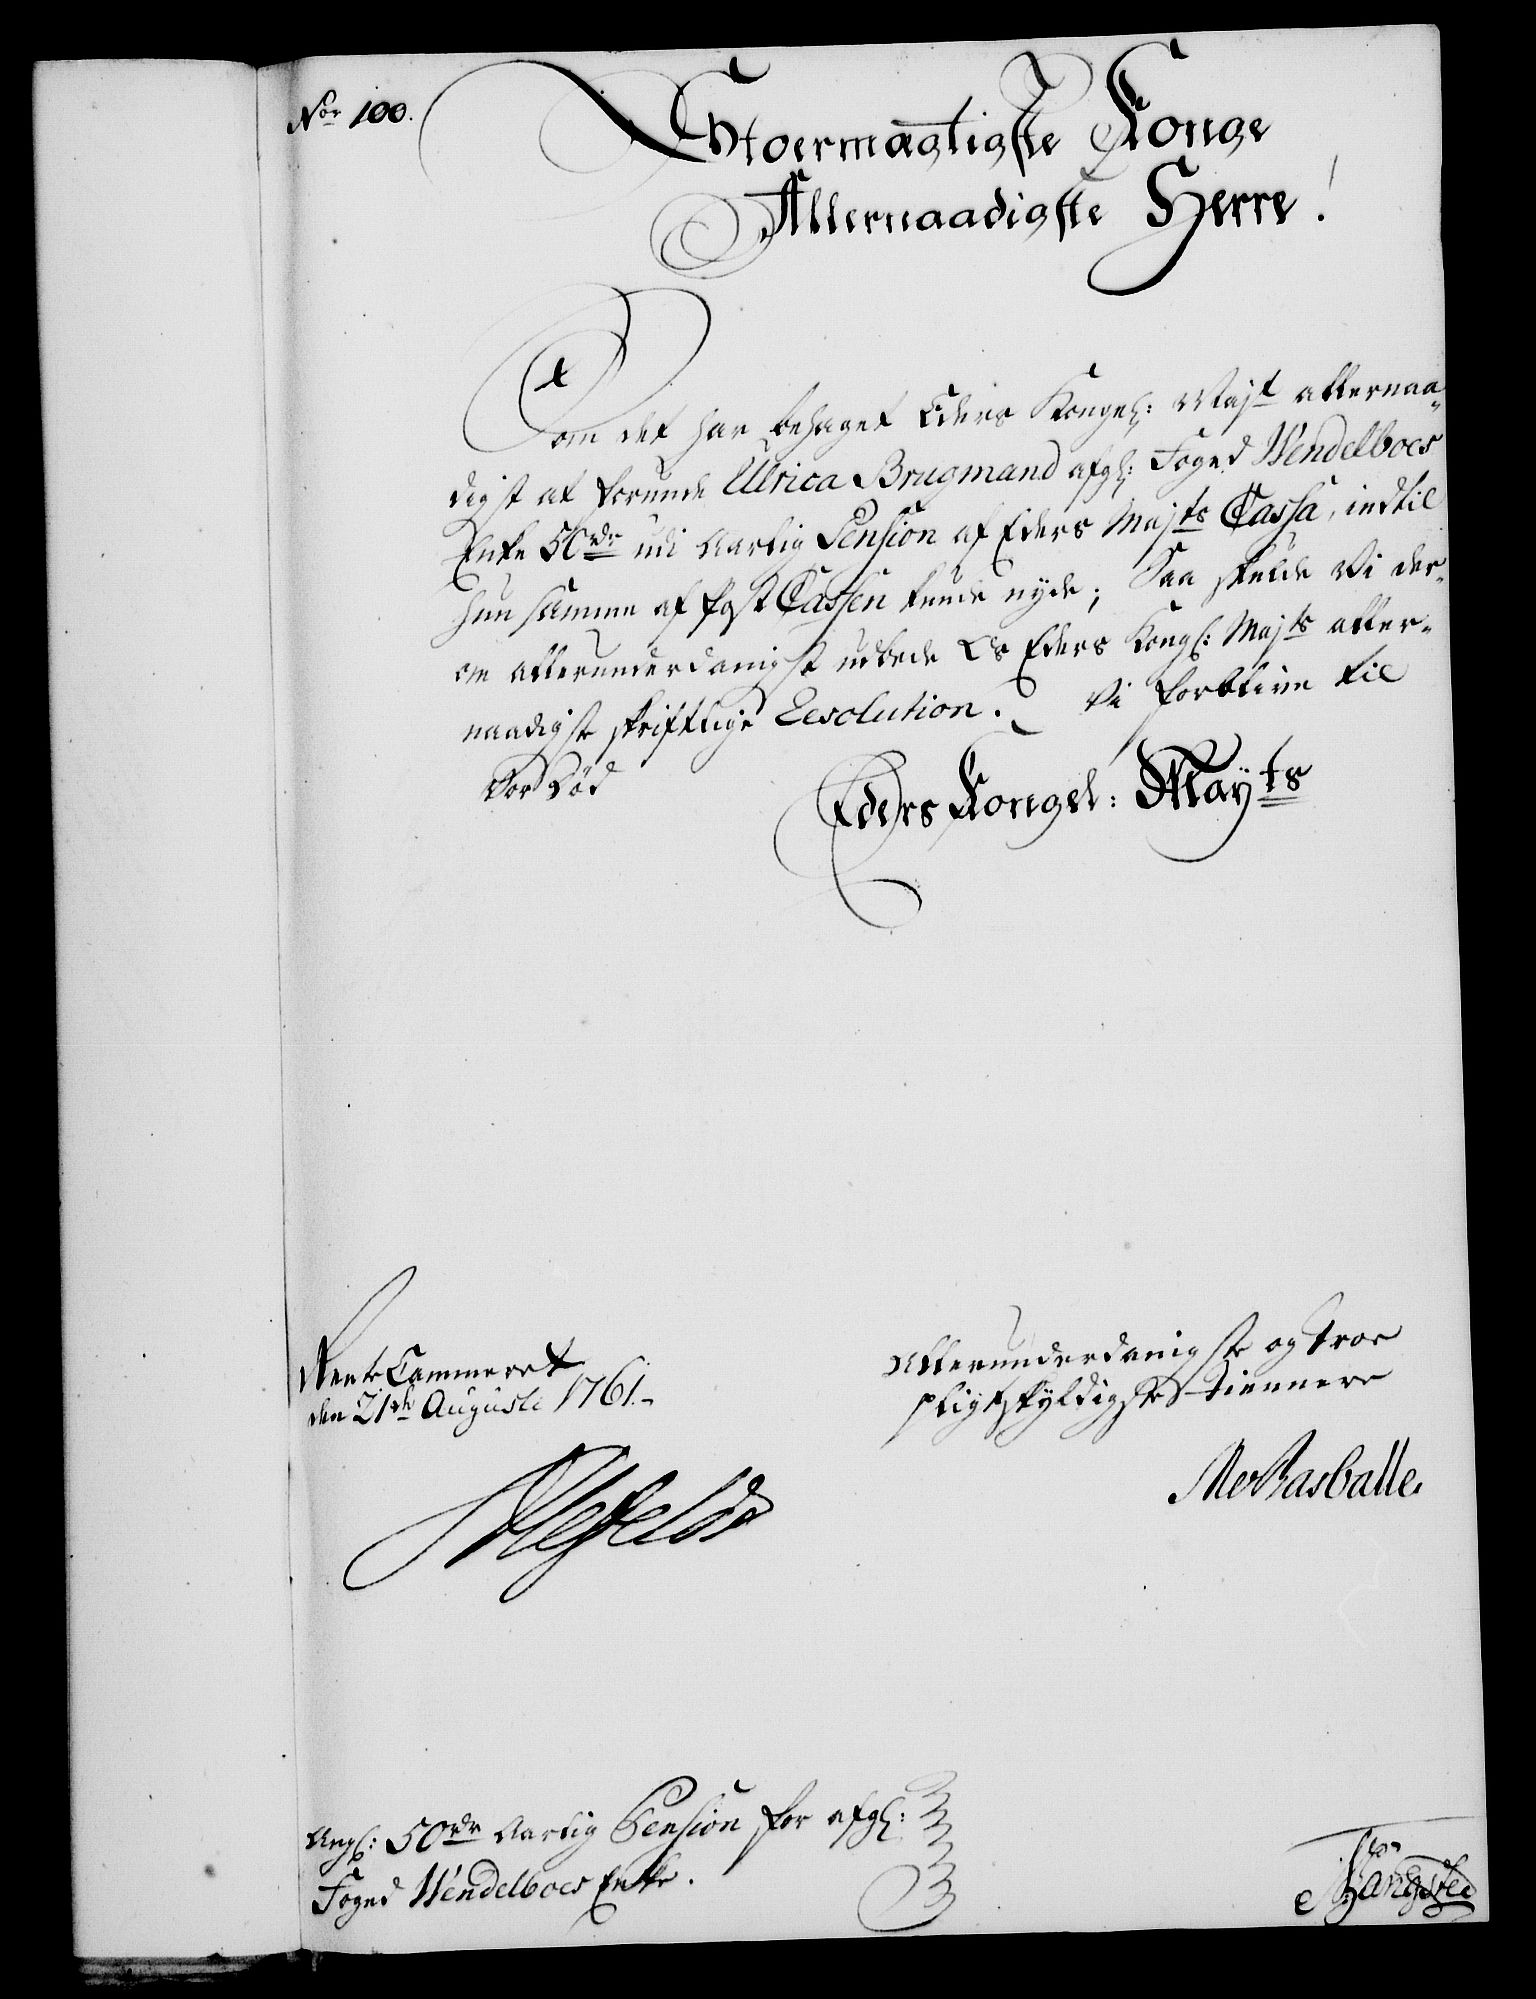 No 100.
Stoermægtigste Konge
Allernaadigste Herre!
Som det har behaget Eders Kongel: Majt allernaa-
digst at forunde Ulrica Brugmand afgl: Foged Wendelboes
Enke 50 rdr udi Aarlig Pension af Eders Majts Cassa, indtil
hun samme af Post Cassen kunde nyde; Saa skulde Vi der-
om allerunderdanigst udbede Os Eders Kongl: Majts aller-
naadigste skriftlige Resolution. Vi forblive til
Vor Død
Eders Kongel: Mayts
Rente Cammeret
den 21de Augusti 1761.
Allerunderdanigste og troe
pligtskyldigste Tiennere
Ahlefeldt
Angl: 50 rdr Aarlig Pension for afgl:
Foged Wendelboes Enke.